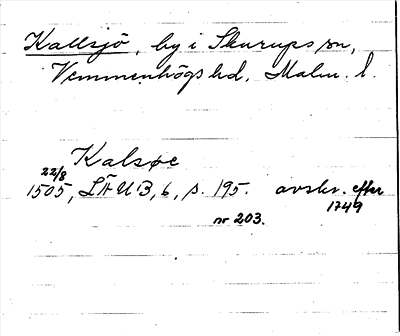 Kallsjö, by i Skurups sn,
Vemmenhögs hd, Malm. l.
Kalsøe
22/8
1505, LÄUB, 6, s. 195. avskr. efter
1749
nr 203.